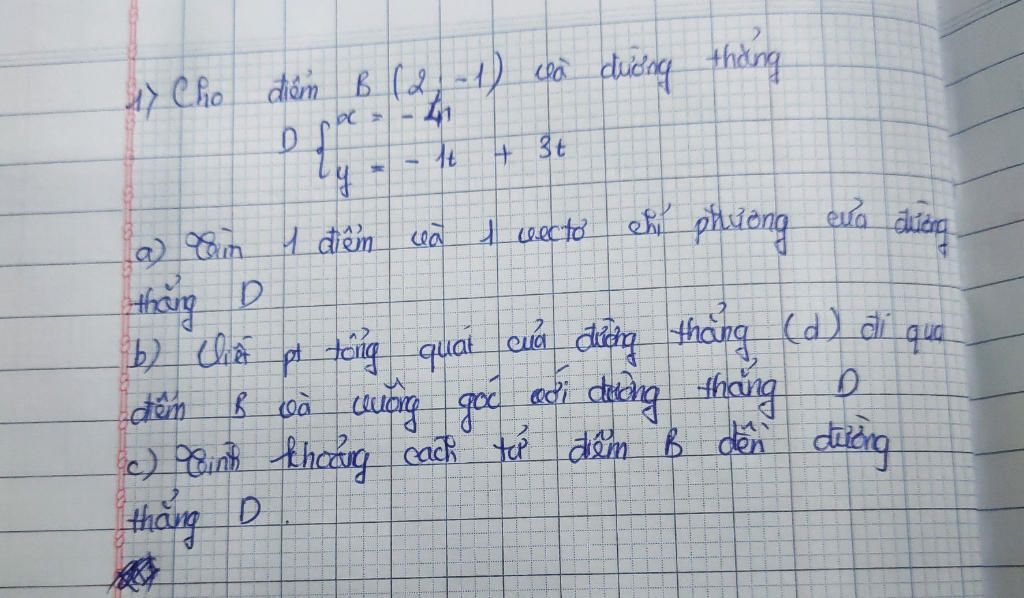 1) Cho điểm B (2, -1) và đường thẳng
D { x = - 4
y = - 1t + 3t
a) Tìm 1 điểm và 1 vectơ chỉ phương của đường
thẳng D
b) Viết pt tổng quát của đường thẳng (d) đi qua
điểm B và vuông góc với đường thẳng D
c) Tính khoảng cách từ điểm B đến đường
thẳng D.